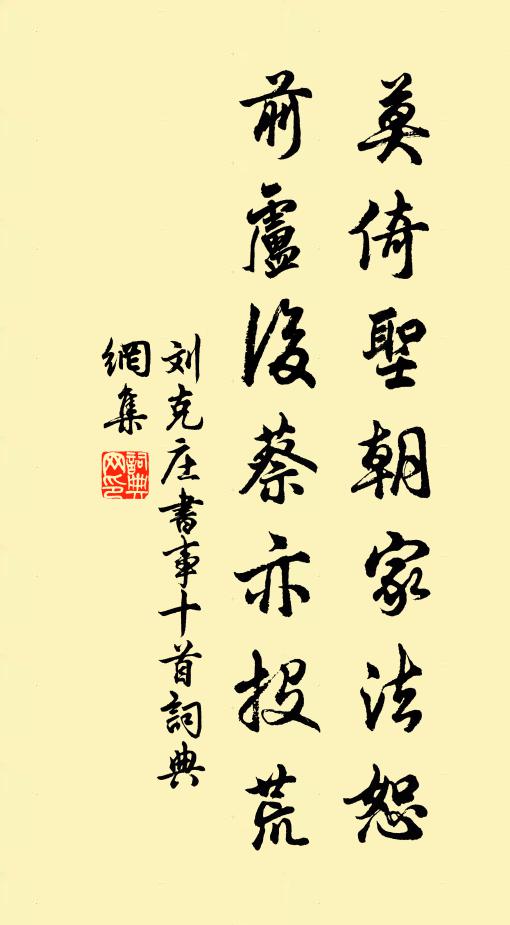 莫倚聖朝家法恕
前盧後蔡亦投荒
刘克庄書事十首詞典
網集
詞典网印